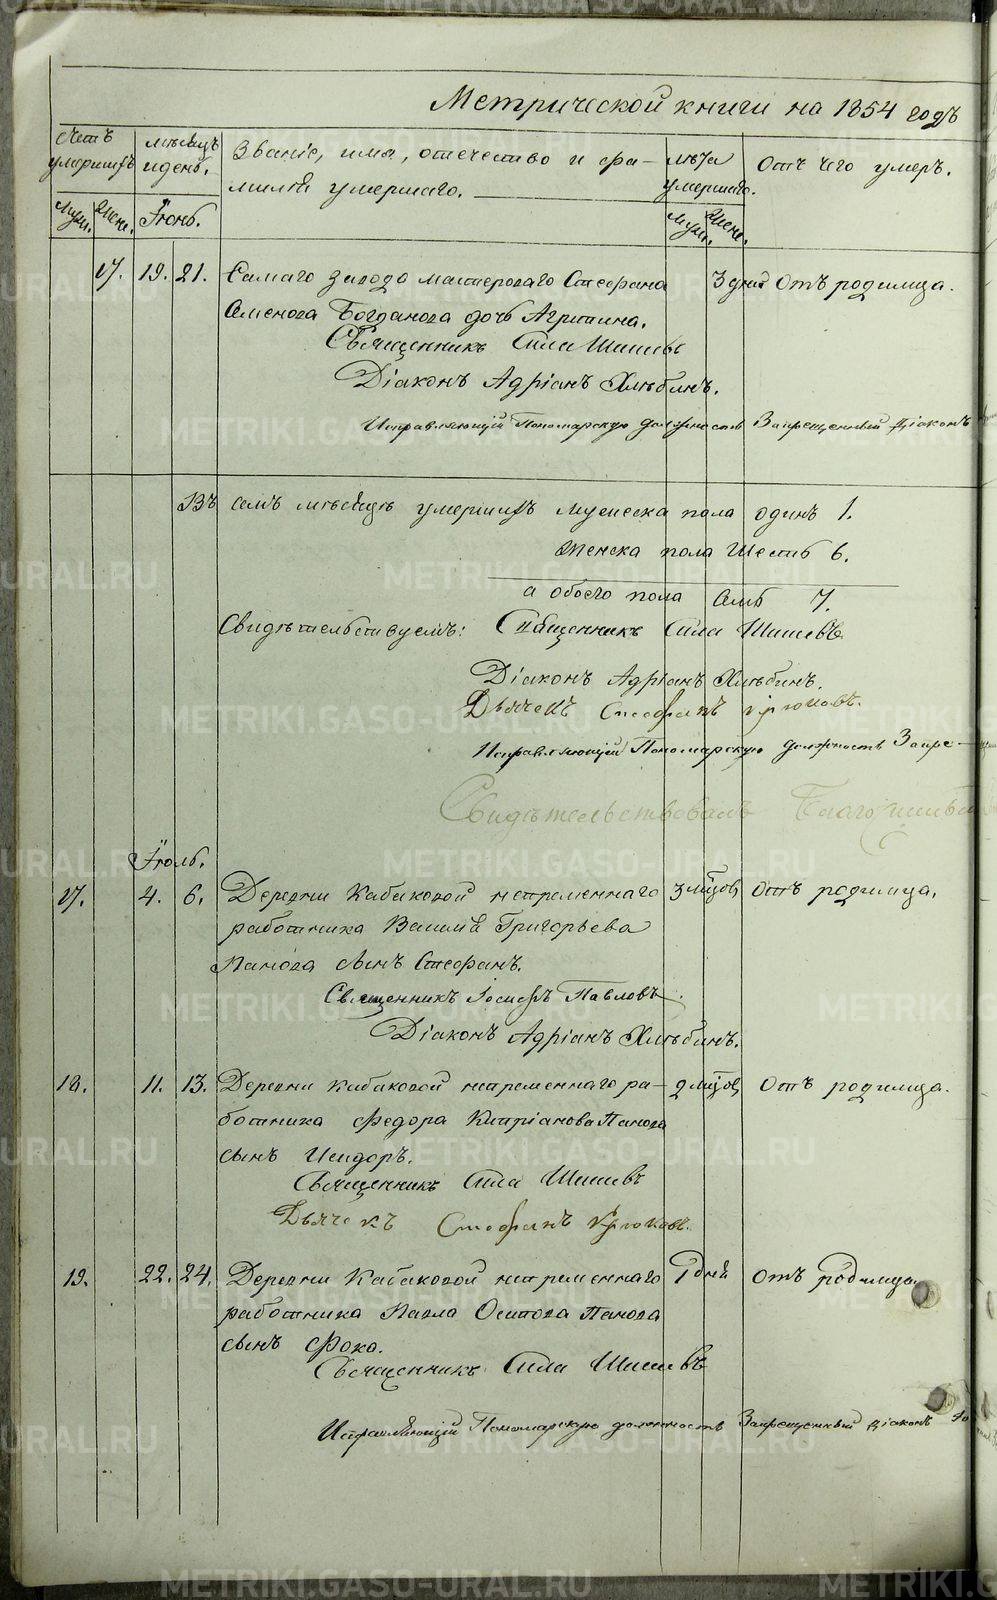 Метрической книги на 1854 годъ
Счетъ умершихъ
мѣсяцъ и день.
Званіе, имя, отечество и фамилія умершаго.
лѣта умершаго.
Отъ чего умеръ.
Муж. Жен. Іюнь. Муж. Жен.
17. 19. 21. Самаго завода мастероваго Стефана 3 дней Отъ родимца.
Семенова Богданова дочь Агрипина.
Священникъ Сила Шишевъ
Діаконъ Адріанъ Хлѣбинъ.
Исправляющій Пономарскую должность Запрещенный діаконъ
Въ семъ мѣсяцѣ умершихъ мужеска пола одинъ 1.
Женска пола Шесть 6.
а обоего пола Семь 7.
Свидѣтельствуемъ: Священникъ Сила Шишевъ
Діаконъ Адріанъ Хлѣбинъ.
Дьячекъ Стефанъ Крюковъ.
Исправляющій Пономарскую должность Запре-
Свидѣтельствовалъ
Іюль.
17. 4. 6. Деревни Кабаковой непременнаго 3 мѣсяцов Отъ родимца.
работника Василія Григорьева
Панова сынъ Стефанъ.
Священникъ Іосифъ Павловъ.
Діаконъ Адріанъ Хлѣбинъ.
18. 11. 13. Деревни Кабаковой непременнаго ра- 2 мѣсяцов Отъ родимца.
ботника Федора Кипріанова Панова
сынъ Исидоръ.
Священникъ Сила Шишевъ
Дьячекъ Стефанъ Крюковъ.
19. 22. 24. Деревни Кабаковой непременнаго дней Отъ родимца.
работника Павла Осипова Панова
сынъ Фока.
Священникъ Сила Шишевъ
Исправляющій Пономарскую должность Запрещенный діаконъ
METRIKI.GASO-URAL.RU